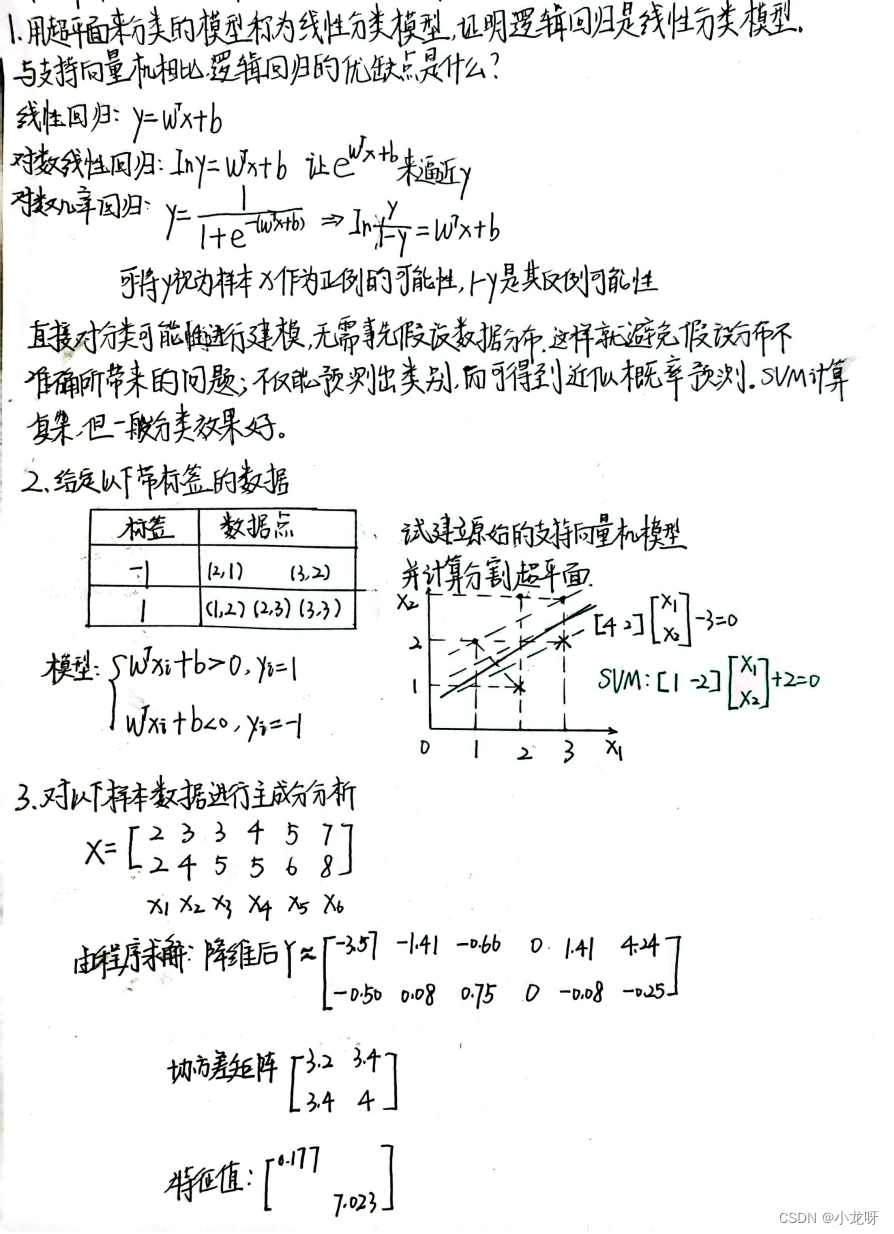 1.用超平面来分类的模型称为线性分类模型,证明逻辑回归是线性分类模型.
与支持向量机相比.逻辑回归的优缺点是什么?
线性回归: y=wᵀx+b
对数线性回归: lny=wᵀx+b 让e^(wᵀx+b)来逼近y
对数几率回归: y=1/(1+e^-(wᵀx+b)) ⇒ ln y/(1-y)=wᵀx+b
可将y视为样本x作为正例的可能性,1-y是其反例可能性
直接对分类可能性进行建模,无需事先假设数据分布.这样就避免假设分布不
准确所带来的问题;不仅能预测出类别,而可得到近似概率预测。SVM计算
复杂,但一般分类效果好。
2.给定以下带标签的数据
标签 数据点
-1 (2,1) (3,2)
1 (1,2) (2,3) (3,3)
试建立原始的支持向量机模型
并计算分割超平面.
模型: { wᵀxᵢ+b>0, yᵢ=1
wᵀxᵢ+b<0, yᵢ=-1
x₂
[4 2][x₁ x₂]-3=0
SVM: [1 -2][x₁ x₂]+2=0
2
1
0 1 2 3 x₁
3.对以下样本数据进行主成分分析
X= [2 3 3 4 5 7
2 4 5 5 6 8]
x1 x2 x3 x4 x5 x6
由程序求解: 降维后Y≈ [-3.57 -1.41 -0.66 0 1.41 4.24
-0.50 0.08 0.75 0 -0.08 -0.25]
协方差矩阵 [3.2 3.4
3.4 4]
特征值: [0.177
7.023]
CSDN @小龙呀